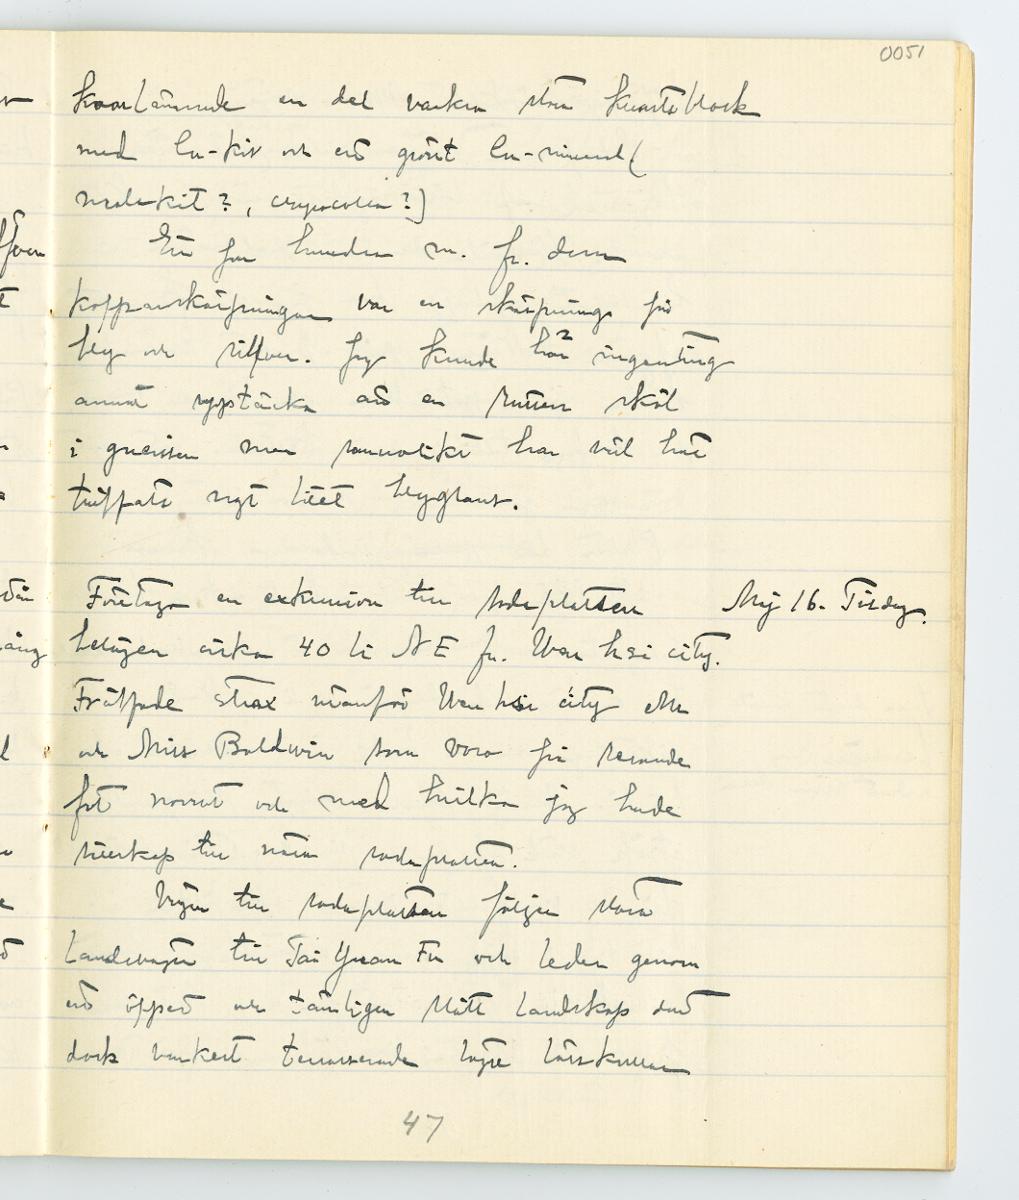 0051
kvarlämnade en del vackra stora kvartsblock
med Cu-kis och ett grönt Cu-mineral (
malakit?, crysocolla?)
Ett par hundra m. fr. dessa
kopparskärpningar var en skärpning på
bly och silfver. Jag kunde här ingenting
annat upptäcka än en rutten sköl
i gneissen men sannolikt har väl här
träffats ngt litet blyglans.
Företog en exkursion till sodaplatsen Maj 16. Tisdag.
belägen cirka 40 li NE fr. Wen hsi city.
Träffade strax utanför Wen hsi city Mr
och Miss Baldwin som voro på resande
fot norrut och med hvilka jag hade
sällskap till nära sodaplatsen.
Vägen till sodaplatsen följer stora
landsvägen till Tai Yuan Fu och leder genom
ett öppet och tämligen slätt landskap med
dock vackert terrasserade lägre lösskullar
47